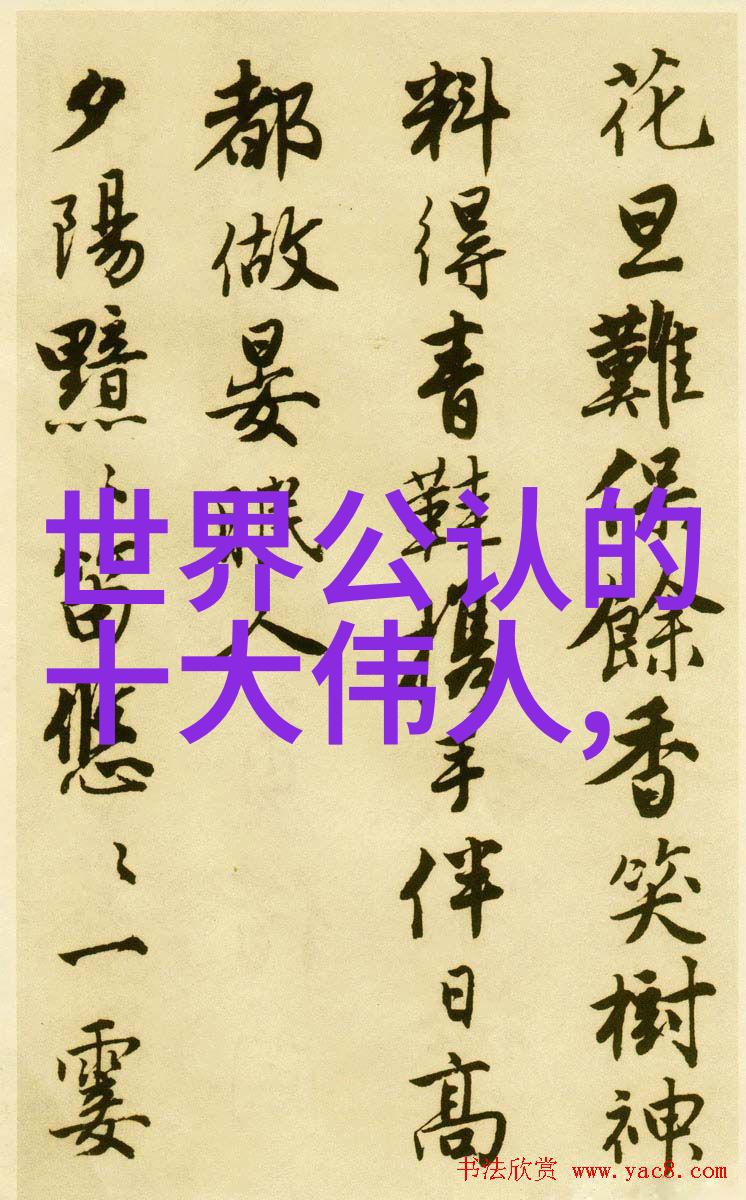 花旦難保餘香笑樹神
料得青鞋携手伴日高
都做晏眠人
夕陽黯黯笛悠悠一霎
世界公认的
十大伟人,
书法欣赏 www.yac8.com